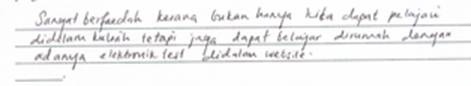 Sangat berfaedah kerana bukan hanya kita dapat pelajari
didalam kuliah tetapi juga dapat belajar dirumah dengan
adanya elektronik test didalam website.